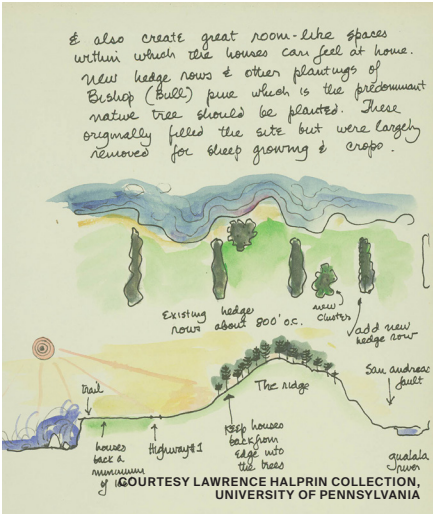 & also create great room-like spaces
within which the houses can feel at home.
New hedge rows & other plantings of
Bishop (Bull) pine which is the predominant
native tree should be planted. These
originally filled the site but were largely
removed for sheep growing & crops.
Existing hedge
rows about 800' o.c.
new
clusters
add new
hedge row
trail
The ridge
San andreas
fault
houses
back a
minimum
of
Highway #1
Keep houses
back from
edge into
the trees
gualala
river
COURTESY LAWRENCE HALPRIN COLLECTION,
UNIVERSITY OF PENNSYLVANIA